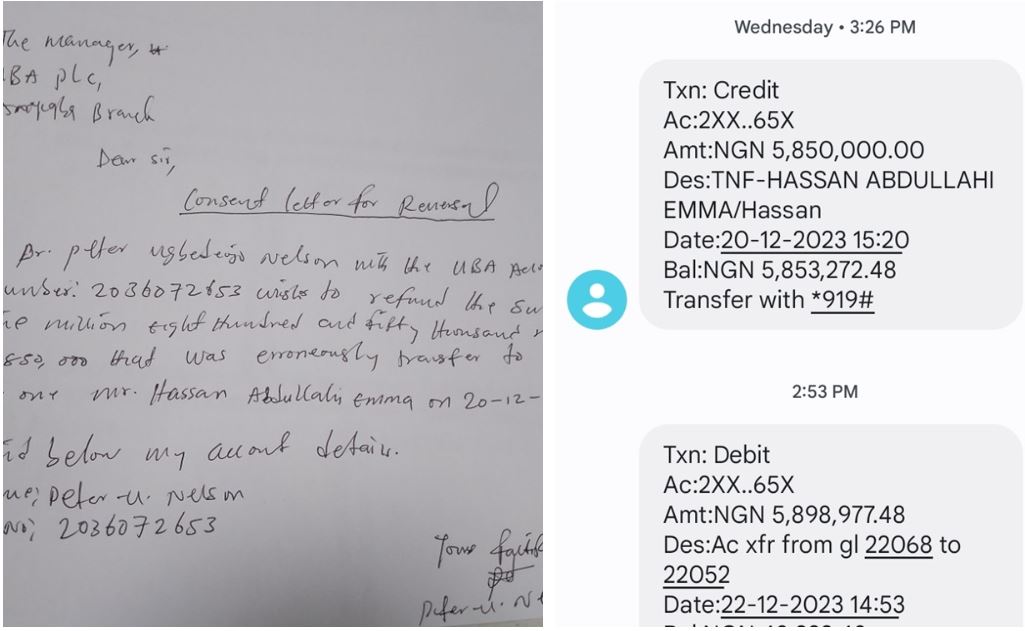 The manager,
BA plc,
Branch
Dear sir,
Consent letter for Reversal
Nelson with the UBA
2036072653 wishes to refund the
million eight Hundred and fifty thousand
850,000 that was erroneously transfer to
one mr. Hassan Abdullahi Emma on 20-12-
below my account details.
Peter U. Nelson
2036072653
Yours
Peter-U.
Wednesday • 3:26 PM
Txn: Credit
Ac:2XX..65X
Amt:NGN 5,850,000.00
Des:TNF-HASSAN ABDULLAHI
EMMA/Hassan
Date:20-12-2023 15:20
Bal:NGN 5,853,272.48
Transfer with *919#
2:53 PM
Txn: Debit
Ac:2XX..65X
Amt:NGN 5,898,977.48
Des:Ac xfr from gl 22068 to
22052
Date:22-12-2023 14:53